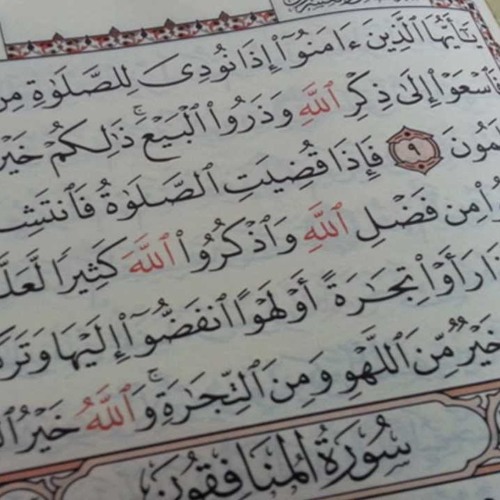 يَٰٓأَيُّهَا ٱلَّذِينَ ءَامَنُوٓا۟ إِذَا نُودِىَ لِلصَّلَوٰةِ مِن
فَٱسْعَوْا۟ إِلَىٰ ذِكْرِ ٱللَّهِ وَذَرُوا۟ ٱلْبَيْعَ ۚ ذَٰلِكُمْ خَيْرٌ
مُونَ ٩ فَإِذَا قُضِيَتِ ٱلصَّلَوٰةُ فَٱنتَشِ
وا۟ مِن فَضْلِ ٱللَّهِ وَٱذْكُرُوا۟ ٱللَّهَ كَثِيرًا لَّعَلَّ
ذَا رَأَوْا۟ تِجَٰرَةً أَوْ لَهْوًا ٱنفَضُّوٓا۟ إِلَيْهَا وَتَرَكُ
خَيْرٌ مِّنَ ٱللَّهْوِ وَمِنَ ٱلتِّجَٰرَةِ ۚ وَٱللَّهُ خَيْرُ ٱل
سُورَةُ المُنَافِقُونَ